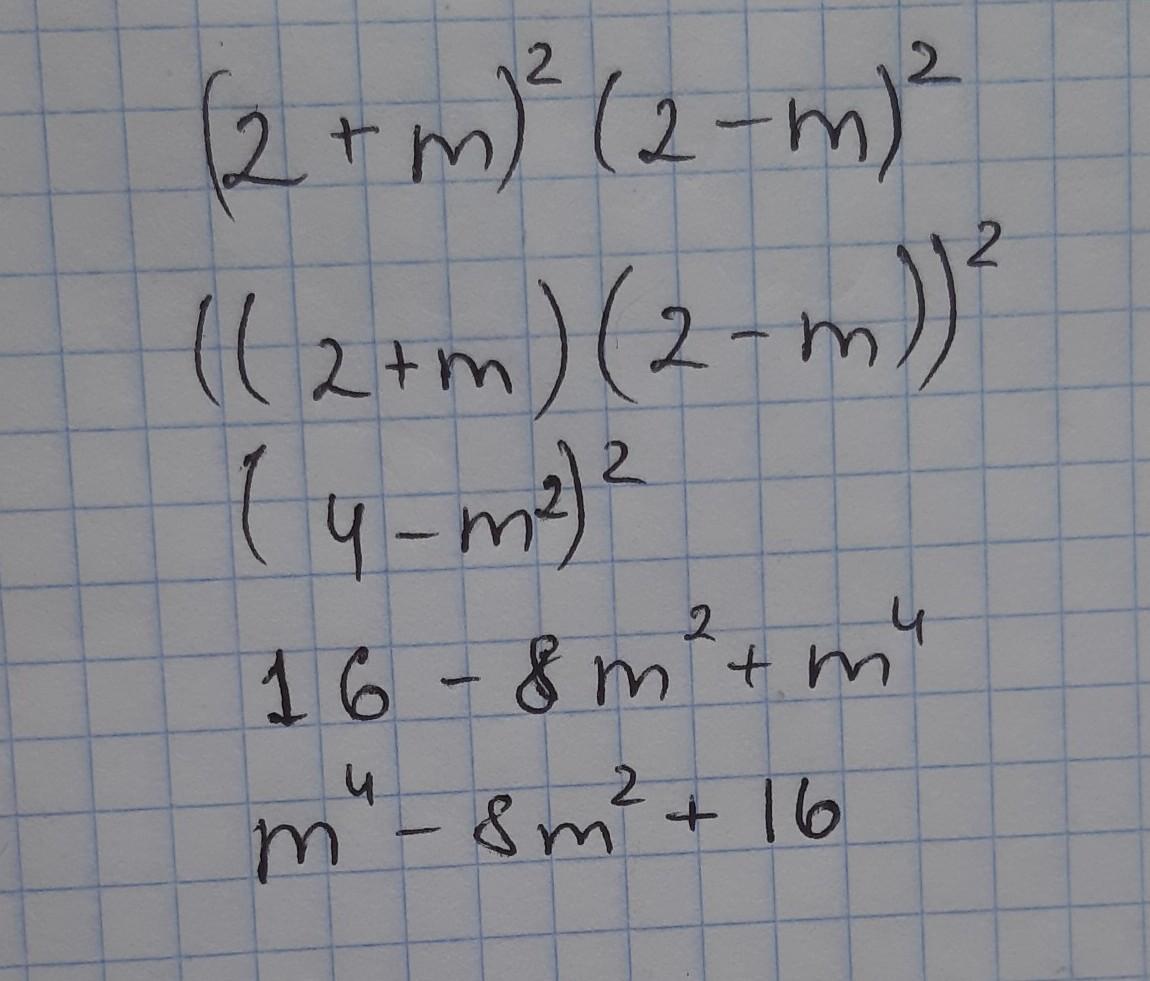 (2 + m)² (2 - m)²
((2 + m)(2 - m))²
(4 - m²)²
16 - 8m² + m⁴
m⁴ - 8m² + 16